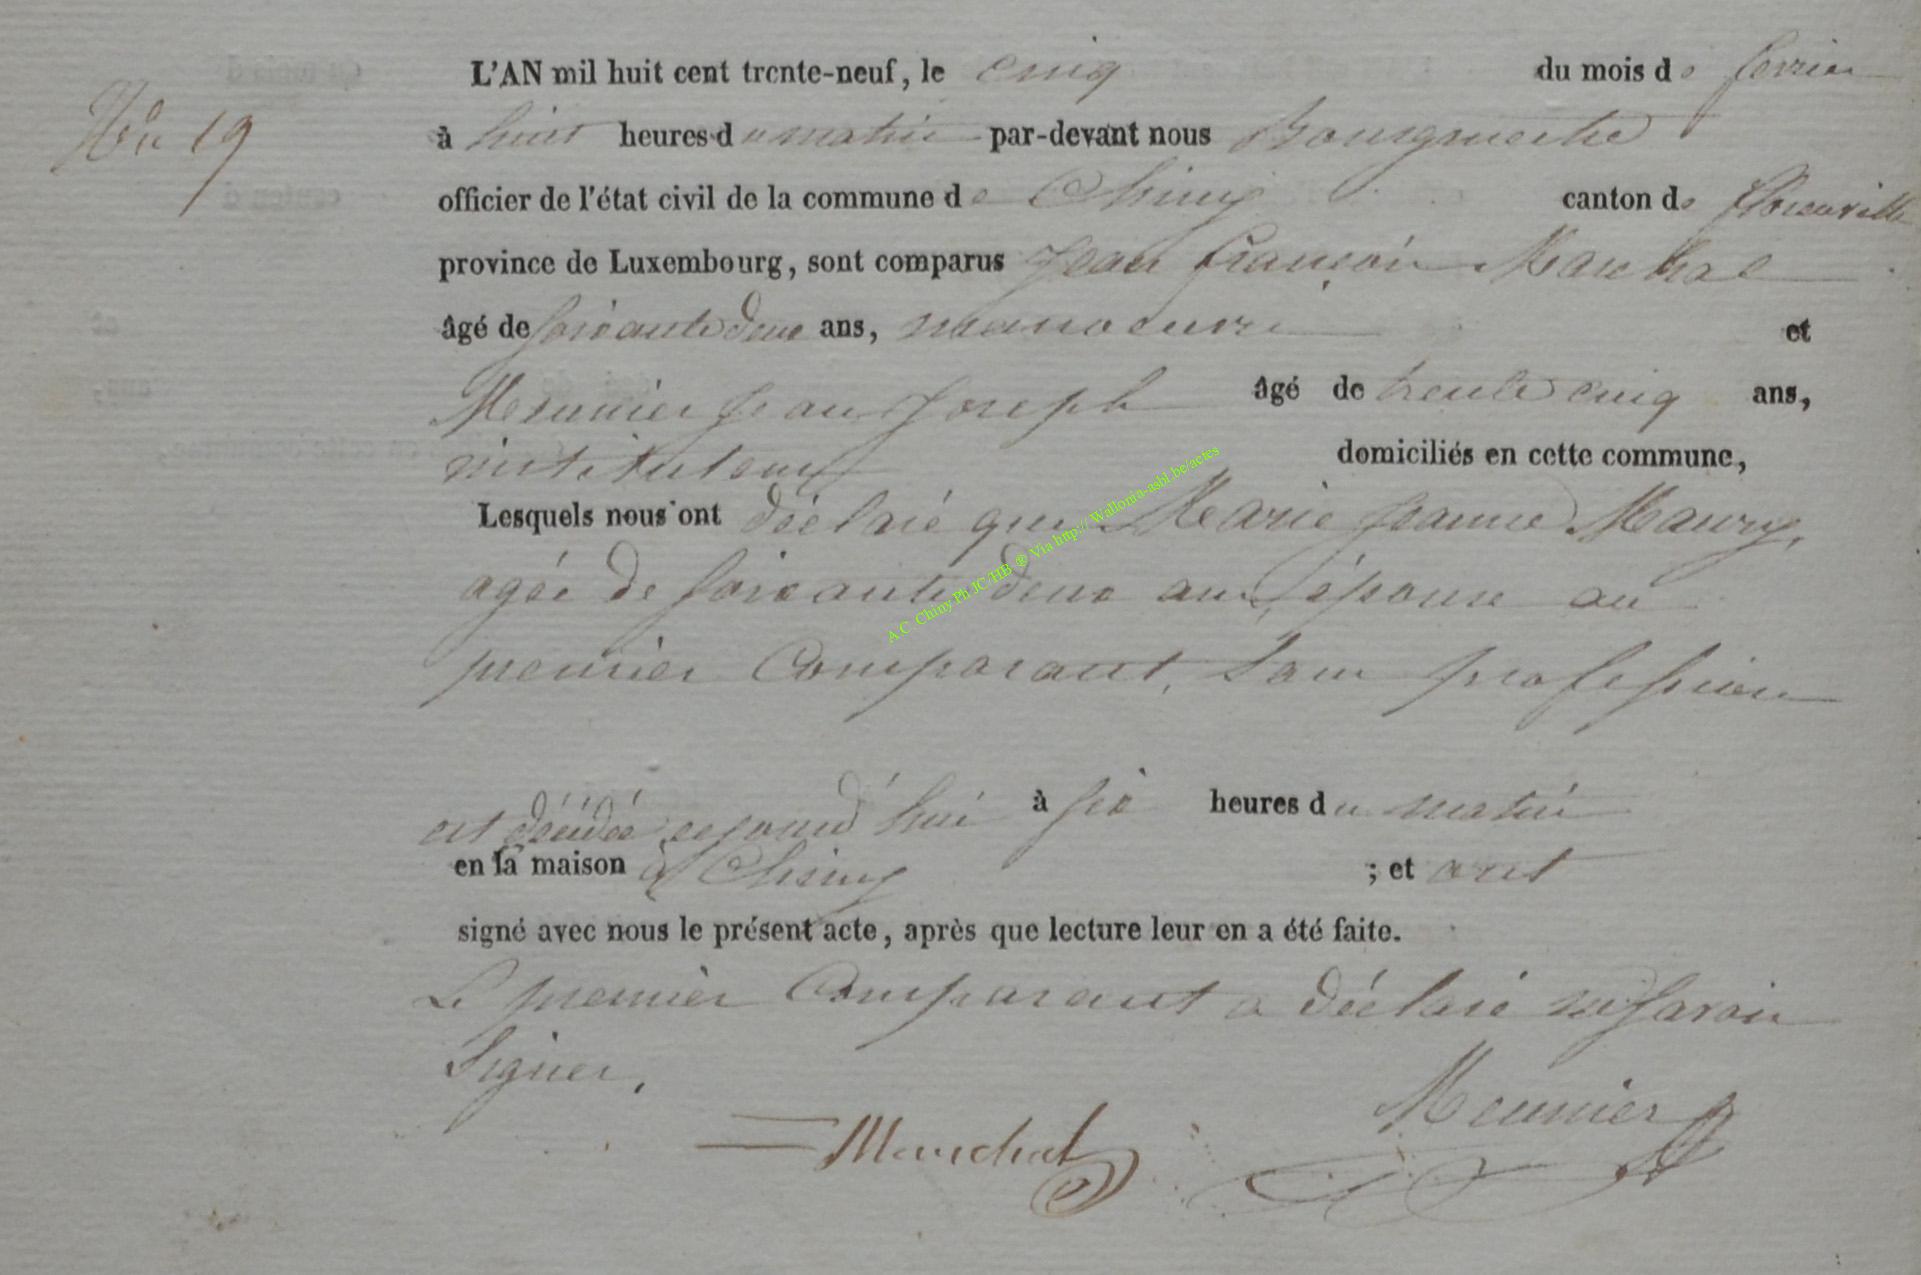 L'AN mil huit cent trente-neuf, le cinq du mois de fevrier
No 19
à huit heures du matin par-devant nous Bourgmestre
officier de l'état civil de la commune de Chiny canton de florenville
province de Luxembourg, sont comparus Jean françois Marchal
âgé de soixante deux ans, manoeuvre et
Meunier Jean Joseph âgé de trente cinq ans,
instituteur domiciliés en cette commune,
Lesquels nous ont déclaré que Marie Jeanne Maury,
agée de soixante deux ans, épouse au
premier Comparant, sans profession
est décédée cejourd'hui à six heures du matin
en la maison à Chiny ; et ont
signé avec nous le présent acte, après que lecture leur en a été faite.
Le premier Comparant a déclaré ne savoir
signer.
Marchal Meunier
A.C. Chiny Ph JC/HB ® Via http:// Wallonia-asbl.be/actes